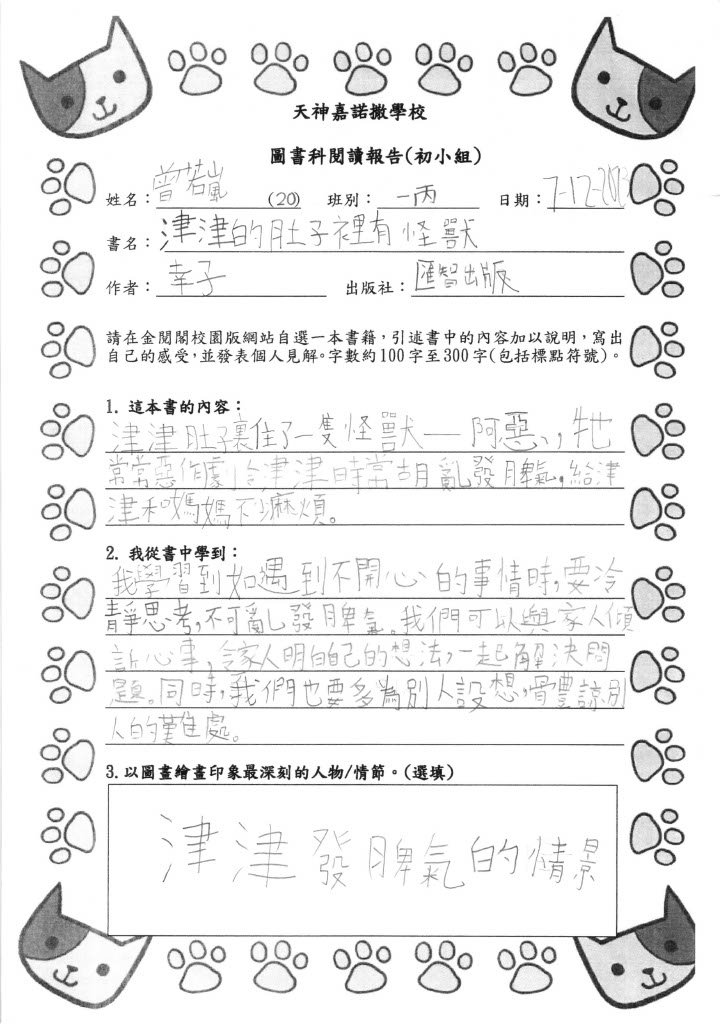 天神嘉諾撒學校
圖書科閱讀報告(初小組)
姓名：曾若嵐 (20) 班別：一丙 日期：7-12-2023
書名：津津的肚子裡有怪獸
作者：幸子 出版社：匯智出版
請在金閱閣校園版網站自選一本書籍，引述書中的內容加以說明，寫出
自己的感受，並發表個人見解。字數約100字至300字(包括標點符號)。
1. 這本書的內容：
津津肚子裏住了一隻怪獸——阿惡，牠
常常惡作劇，令津津時常胡亂發脾氣，給津
津和媽媽不少麻煩。
2. 我從書中學到：
我學習到如遇到不開心的事情時，要冷
靜思考，不可亂發脾氣。我們可以與家人傾
訴心事，令家人明白自己的想法，一起解決問
題。同時，我們也要多為別人設想，體諒別
人的難處。
3. 以圖畫繪畫印象最深刻的人物/情節。(選填)
津津發脾氣的情景